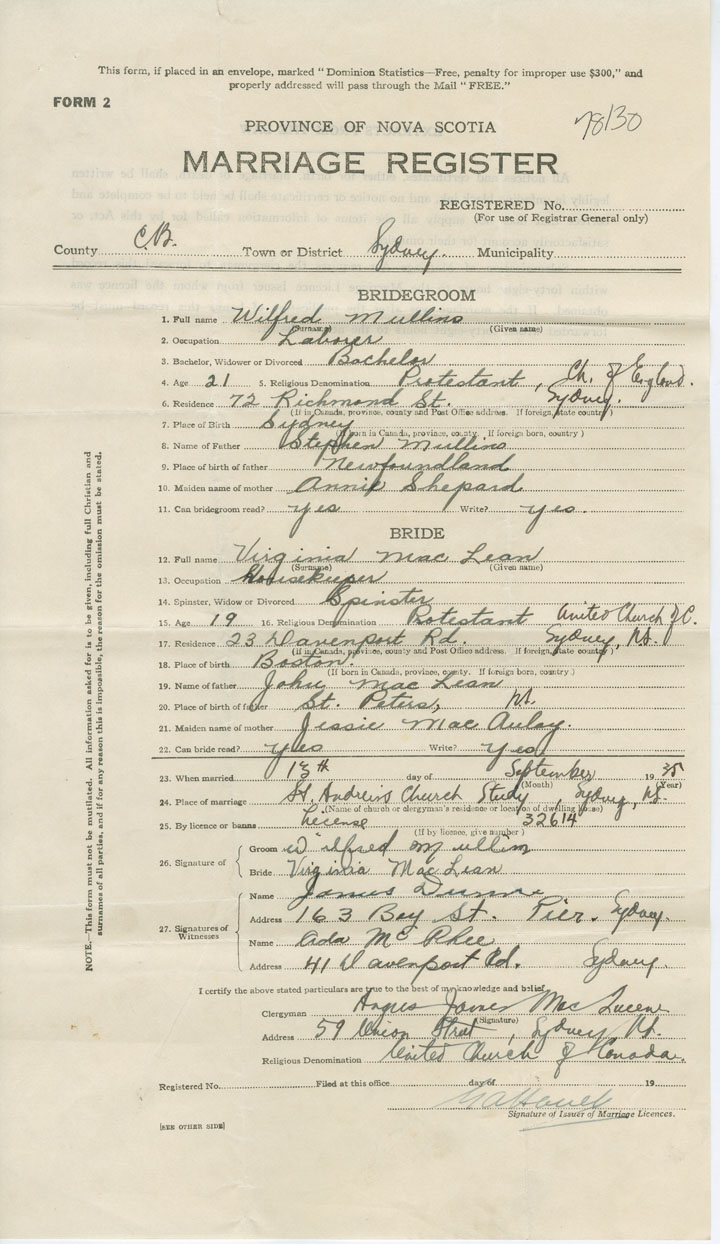 This form, if placed in an envelope, marked "Dominion Statistics—Free, penalty for improper use $300," and
properly addressed will pass through the Mail "FREE."
FORM 2
78130
PROVINCE OF NOVA SCOTIA
MARRIAGE REGISTER
REGISTERED No.
(For use of Registrar General only)
County C.B. Town or District Sydney. Municipality
BRIDEGROOM
1. Full name Wilfred Mullins
(Surname) (Given name)
2. Occupation Laborer
3. Bachelor, Widower or Divorced Bachelor
4. Age 21 5. Religious Denomination Protestant, Ch. of England.
6. Residence 72 Richmond St. Sydney.
(If in Canada, province, county and Post Office address. If foreign, state country)
7. Place of Birth Sydney
(If born in Canada, province, county. If foreign born, country)
8. Name of Father Stephen Mullins
9. Place of birth of father Newfoundland
10. Maiden name of mother Annie Shepard
11. Can bridegroom read? yes Write? yes.
BRIDE
12. Full name Virginia Mac Lean
(Surname) (Given name)
13. Occupation Housekeeper
14. Spinster, Widow or Divorced Spinster
15. Age 19 16. Religious Denomination Protestant United Church of C.
17. Residence 23 Davenport Rd. Sydney, N.S.
(If in Canada, province, county and Post Office address. If foreign, state country)
18. Place of birth Boston.
(If born in Canada, province, county. If foreign born, country)
19. Name of father John Mac Lean
20. Place of birth of father St. Peters, N.S.
21. Maiden name of mother Jessie Mac Aulay.
22. Can bride read? yes Write? yes
23. When married 13th day of September 19 35
(Month) (Year)
24. Place of marriage St. Andrew's Church Study, Sydney, N.S.
(Name of church or clergyman's residence or location of dwelling house)
25. By licence or banns License 32614
(If by licence, give number)
26. Signature of
Groom Wilfred Mullins
Bride Virginia MacLean
27. Signatures of Witnesses
Name James
Address 163 Bay St. Pier. Sydney.
Name Ada McPhee
Address 41 Davenport Rd. Sydney.
I certify the above stated particulars are true to the best of my knowledge and belief.
Clergyman Angus James Mac
(Signature)
Address 59 Union Street, Sydney N.S.
Religious Denomination United Church of Canada.
Registered No. Filed at this office day of 19
Signature of Issuer of Marriage Licences.
[SEE OTHER SIDE]
NOTE.—This form must not be mutilated. All information asked for is to be given, including full Christian and
surnames of all parties, and if for any reason this is impossible, the reason for the omission must be stated.